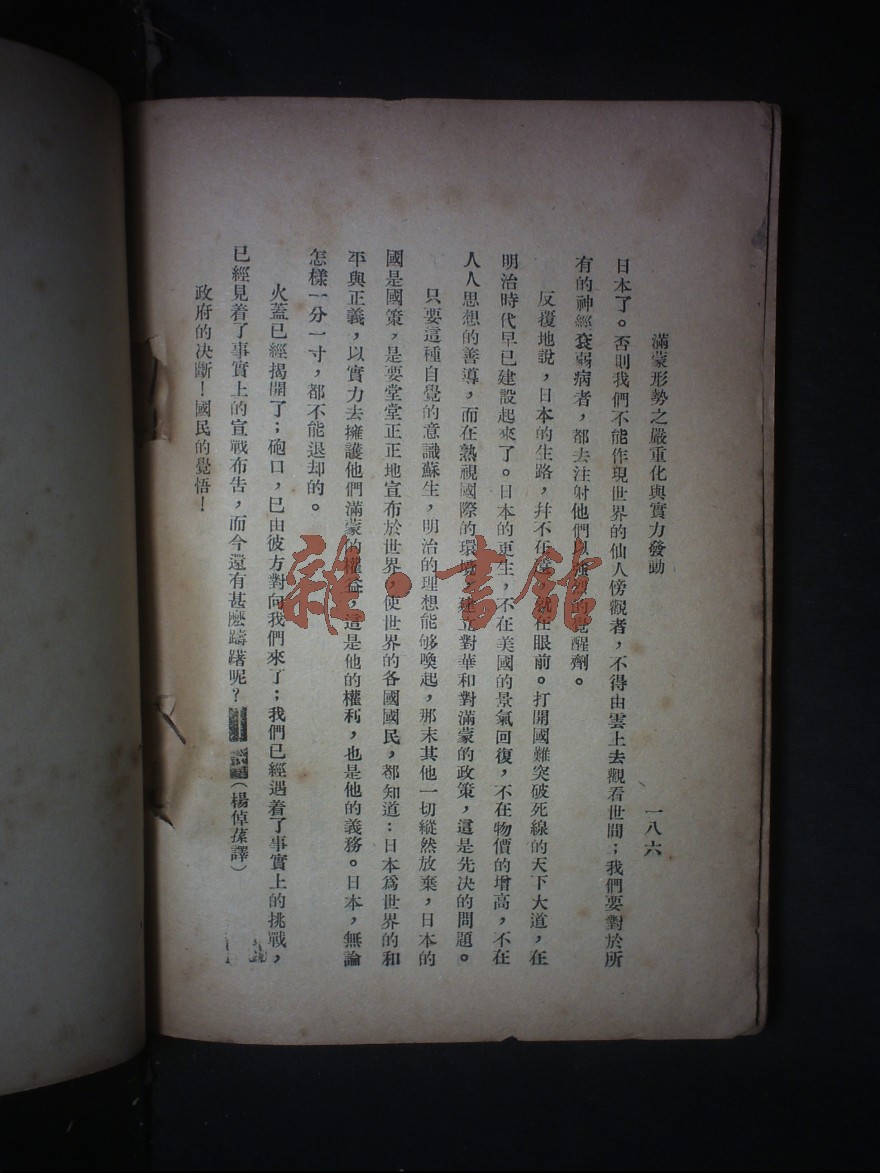 滿蒙形勢之嚴重化與實力發動
一八六
日本了。否則我們不能作現世界的仙人傍觀者，不得由雲上去觀看世間；我們要對於所
有的神經衰弱病者，都去注射他們以強烈的覺醒劑。
反覆地說，日本的生路，幷不在遠，就在眼前。打開國難突破死線的天下大道，在
明治時代早已建設起來了。日本的更生，不在美國的景氣回復，不在物價的增高，不在
人人思想的善導，而在熟視國際的環境，建立對華和對滿蒙的政策，這是先决的問題。
只要這種自覺的意識蘇生，明治的理想能够喚起，那末其他一切縱然放棄，日本的
國是國策，是要堂堂正正地宣布於世界，使世界的各國國民，都知道：日本爲世界的和
平與正義，以實力去擁護他們滿蒙的權益，這是他的權利，也是他的義務。日本，無論
怎樣一分一寸，都不能退却的。
火蓋已經揭開了；砲口，已由彼方對向我們來了；我們已經遇着了事實上的挑戰，
已經見着了事實上的宣戰布告，而今還有甚麽躊躇呢？
（楊倬蓀譯）
政府的决斷！國民的覺悟！
雜·書館